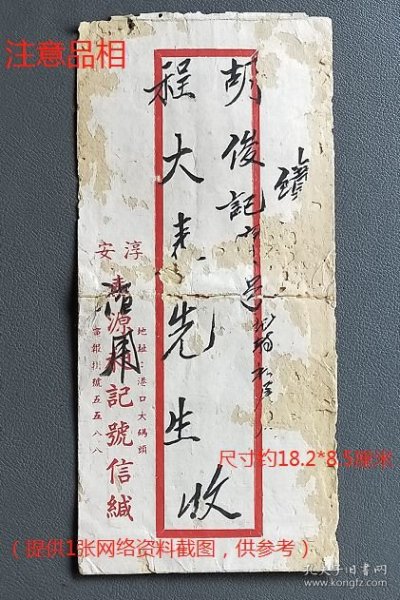 注意品相
胡俊記寶号
程大来先生收
淳安
源
記號信緘
地址：港口大碼頭
電報掛號五五八八
尺寸约18.2*8.5厘米
（提供1张网络资料截图，供参考）
孔夫子旧书网
www.kongfz.com